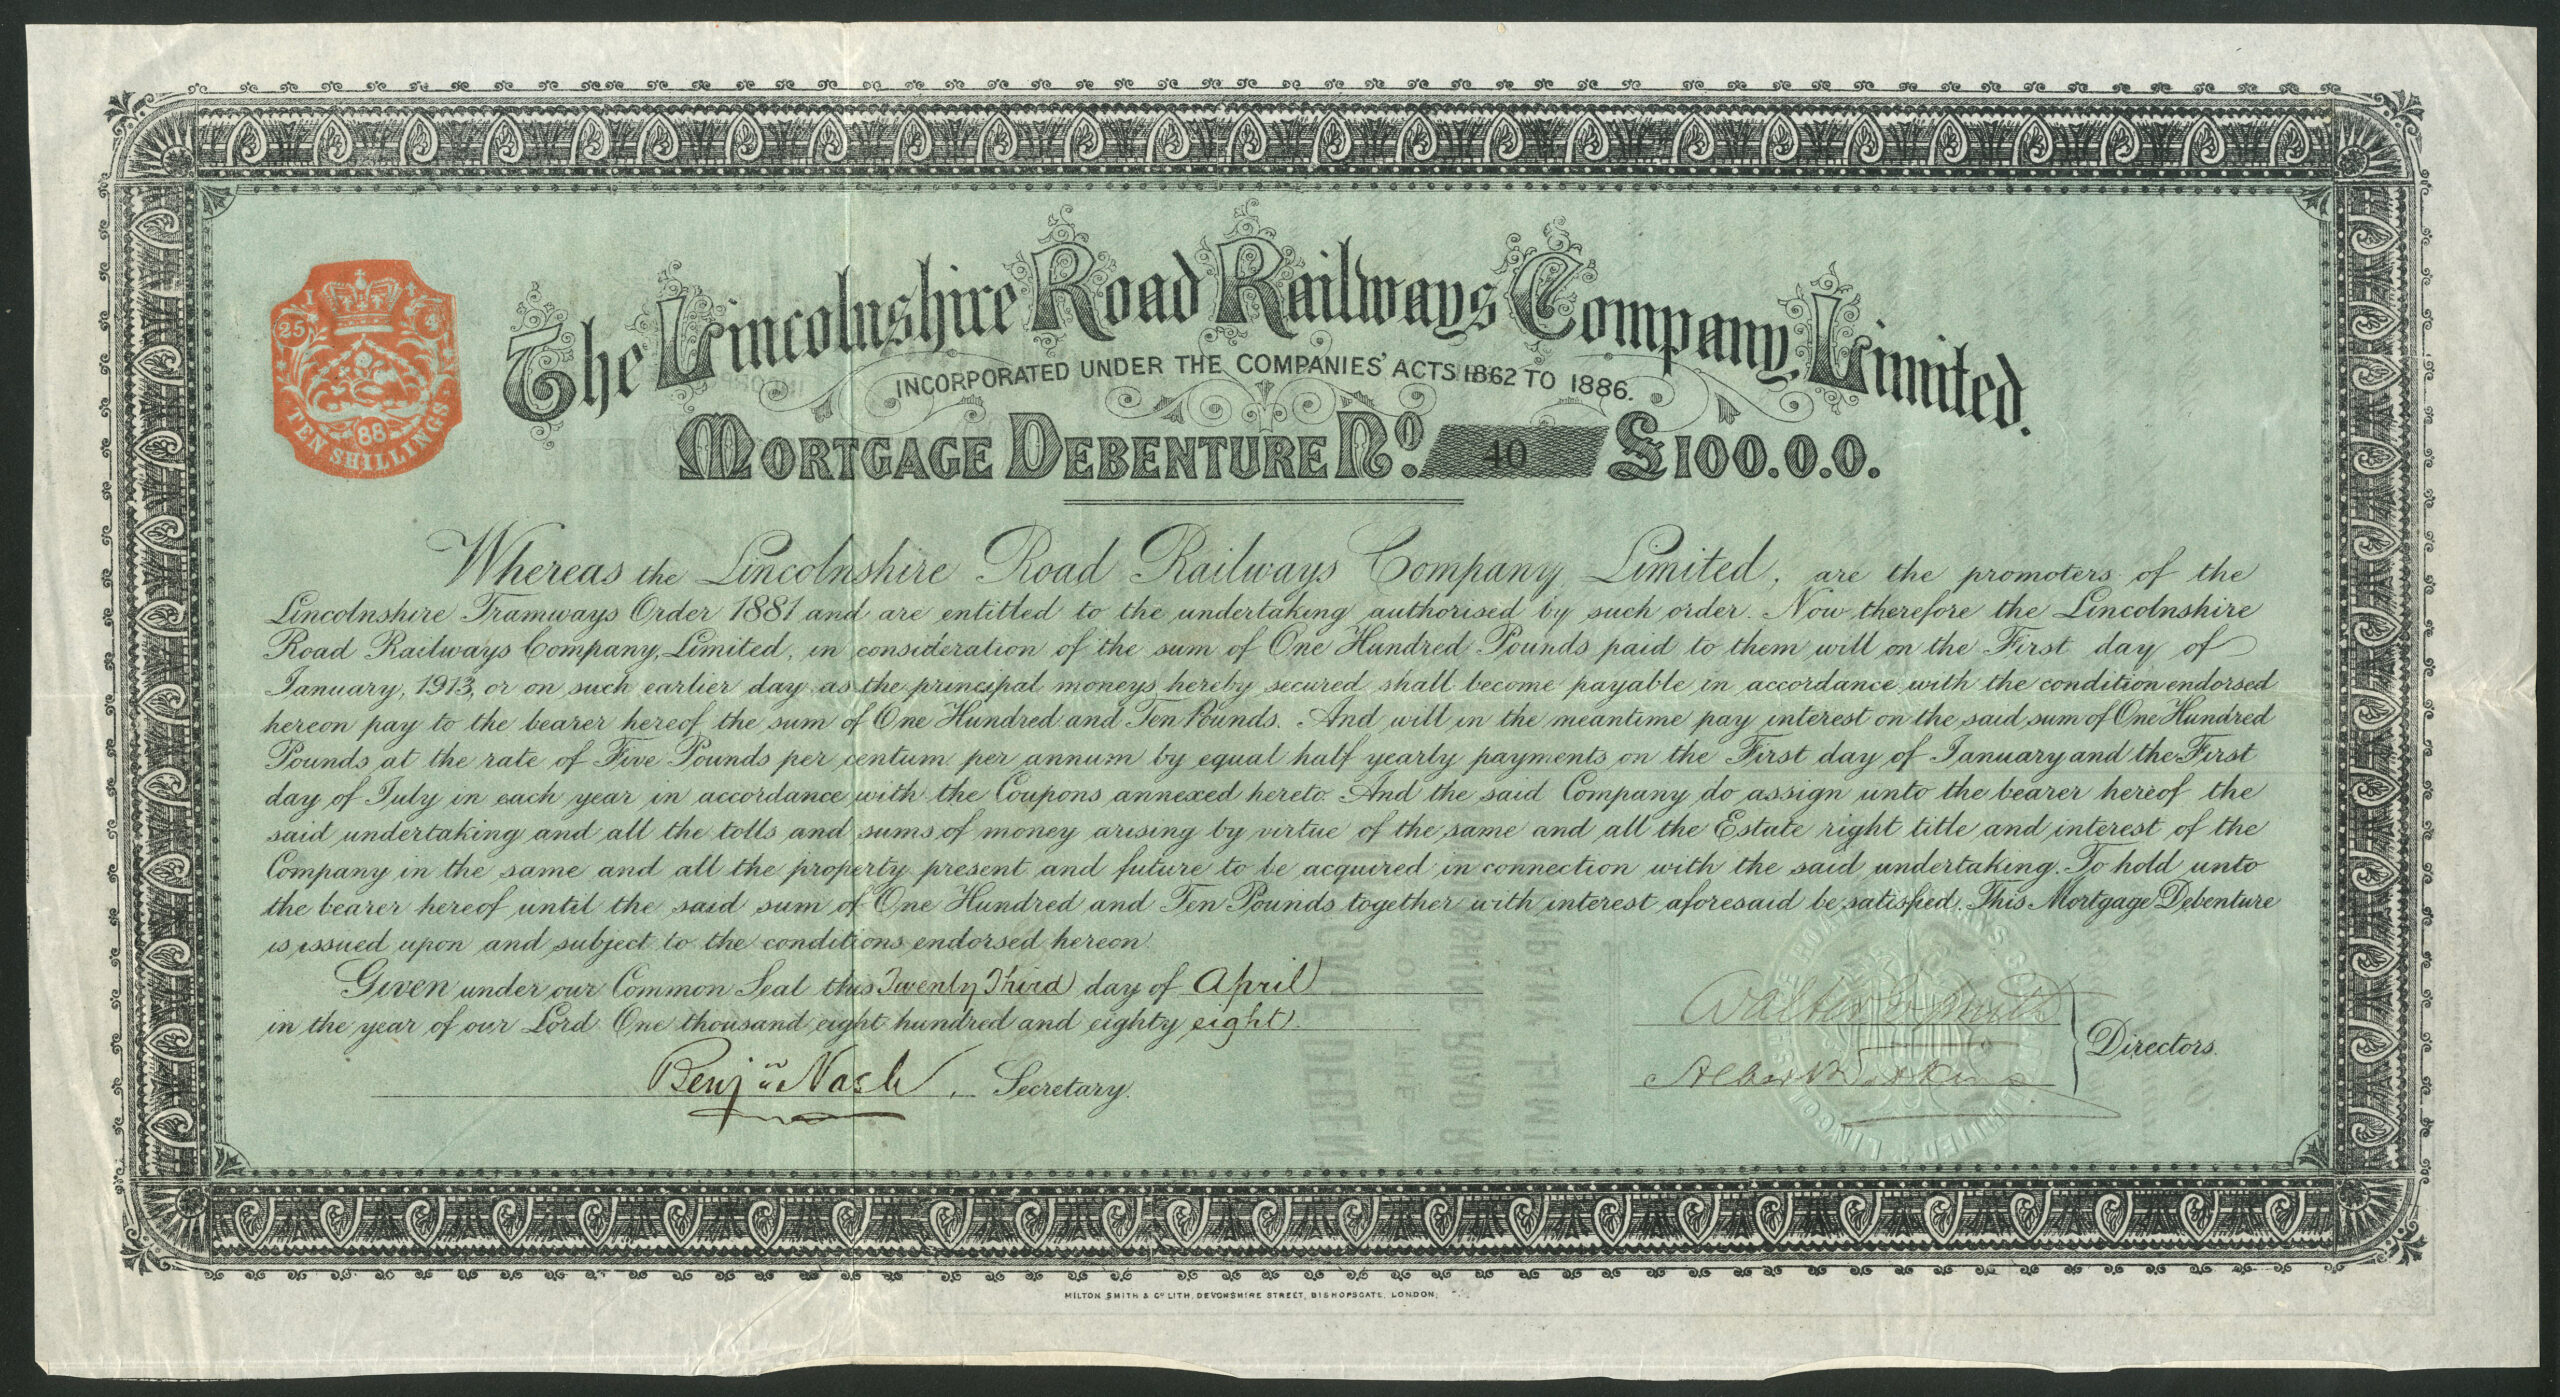 1 4
25 4
TEN SHILLINGS
88
The Lincolnshire Road Railways Company, Limited.
INCORPORATED UNDER THE COMPANIES' ACTS 1862 TO 1886.
MORTGAGE DEBENTURE No. 40 £100.0.0.
Whereas the Lincolnshire Road Railways Company, Limited, are the promoters of the
Lincolnshire Tramways Order 1881 and are entitled to the undertaking authorised by such order. Now therefore the Lincolnshire
Road Railways Company, Limited, in consideration of the sum of One Hundred Pounds paid to them will on the First day of
January, 1913, or on such earlier day as the principal moneys hereby secured shall become payable in accordance with the condition endorsed
hereon pay to the bearer hereof the sum of One Hundred and Ten Pounds. And will in the meantime pay interest on the said sum of One Hundred
Pounds at the rate of Five Pounds per centum per annum by equal half yearly payments on the First day of January and the First
day of July in each year in accordance with the Coupons annexed hereto. And the said Company do assign unto the bearer hereof the
said undertaking and all the tolls and sums of money arising by virtue of the same and all the Estate right title and interest of the
Company in the same and all the property present and future to be acquired in connection with the said undertaking. To hold unto
the bearer hereof until the said sum of One Hundred and Ten Pounds together with interest aforesaid be satisfied. This Mortgage Debenture
is issued upon and subject to the conditions endorsed hereon.
Given under our Common Seal this Twenty Third day of April
in the year of our Lord One thousand eight hundred and eighty eight.
Benjn Nash, Secretary.
Walter Smith
Directors.
MILTON SMITH & Co LITH, DEVONSHIRE STREET, BISHOPSGATE, LONDON.